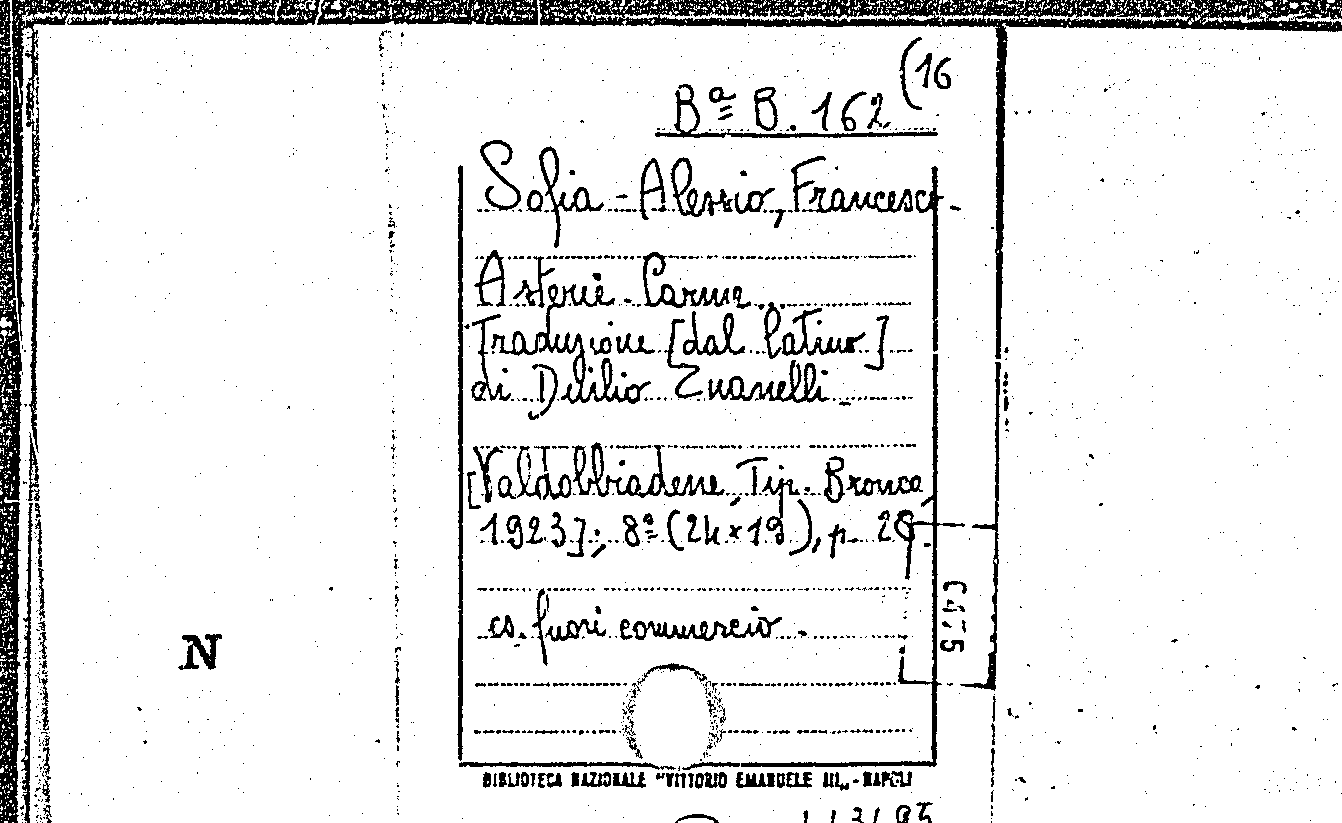 (16
Bª B. 162
Sofia-Alessio, Francesco-
Asterie. Carme...
Traduzione [dal latino]
di Delilio Zuanelli.-
[Valdobbiadene, Tip. Bronca,
1923]; 8º (24x19), p. 28.
es. fuori commercio.
N
BIBLIOTECA NAZIONALE "VITTORIO EMANUELE III" - NAPOLI